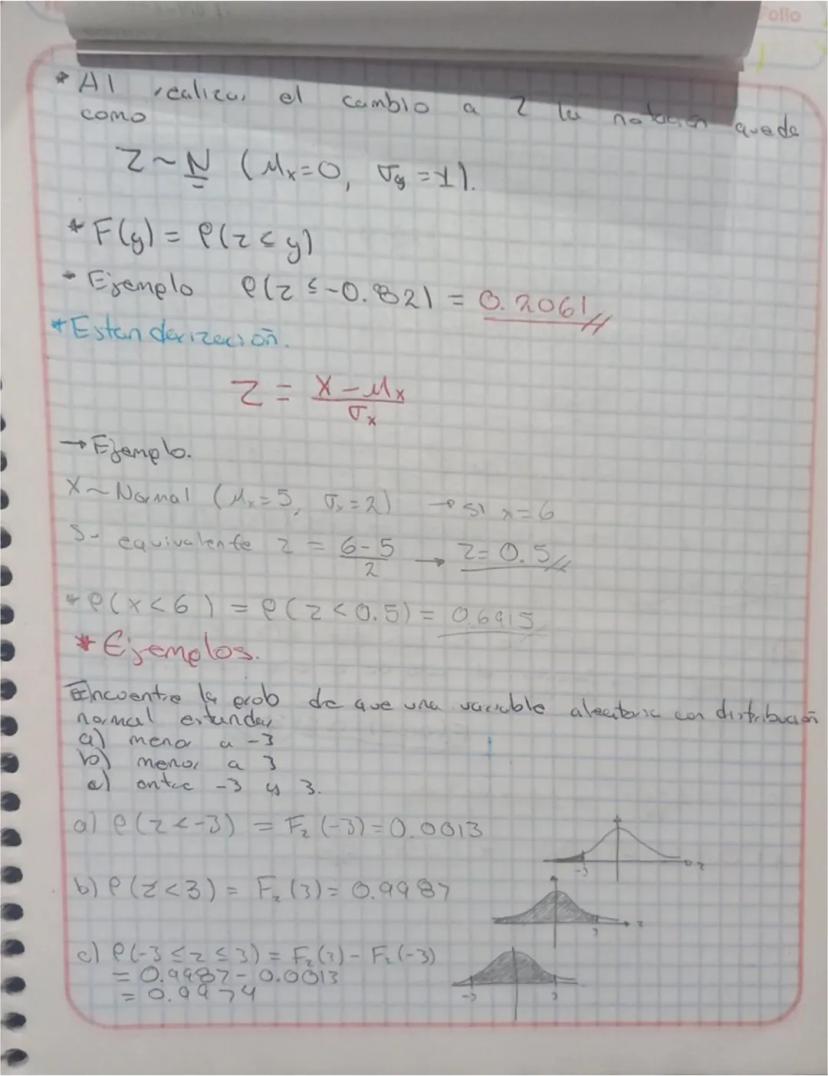 Folio
* Al realizar el cambio a Z la notación queda
como
Z ~ N (μx=0, σy=1).
* F(y) = P(z ≤ y)
* Ejemplo P(z ≤ -0.82) = 0.2061
* Estandarización.
Z = (X - μx) / σx
→ Ejemplo.
X ~ Normal (μx=5, σx=2) → si x=6
Su equivalente z = (6-5) / 2 → z=0.5
* P(x<6) = P(z<0.5) = 0.6915
* Ejemplos.
Encuentre la prob de que una variable aleatoria con distribución
normal estandar
a) menor a -3
b) menor a 3
c) entre -3 y 3.
a) P(z<-3) = Fz(-3) = 0.0013
-3 z
b) P(z<3) = Fz(3) = 0.9987
3 z
c) P(-3 ≤ z ≤ 3) = Fz(3) - Fz(-3)
= 0.9987 - 0.0013
= 0.9974
-3 3